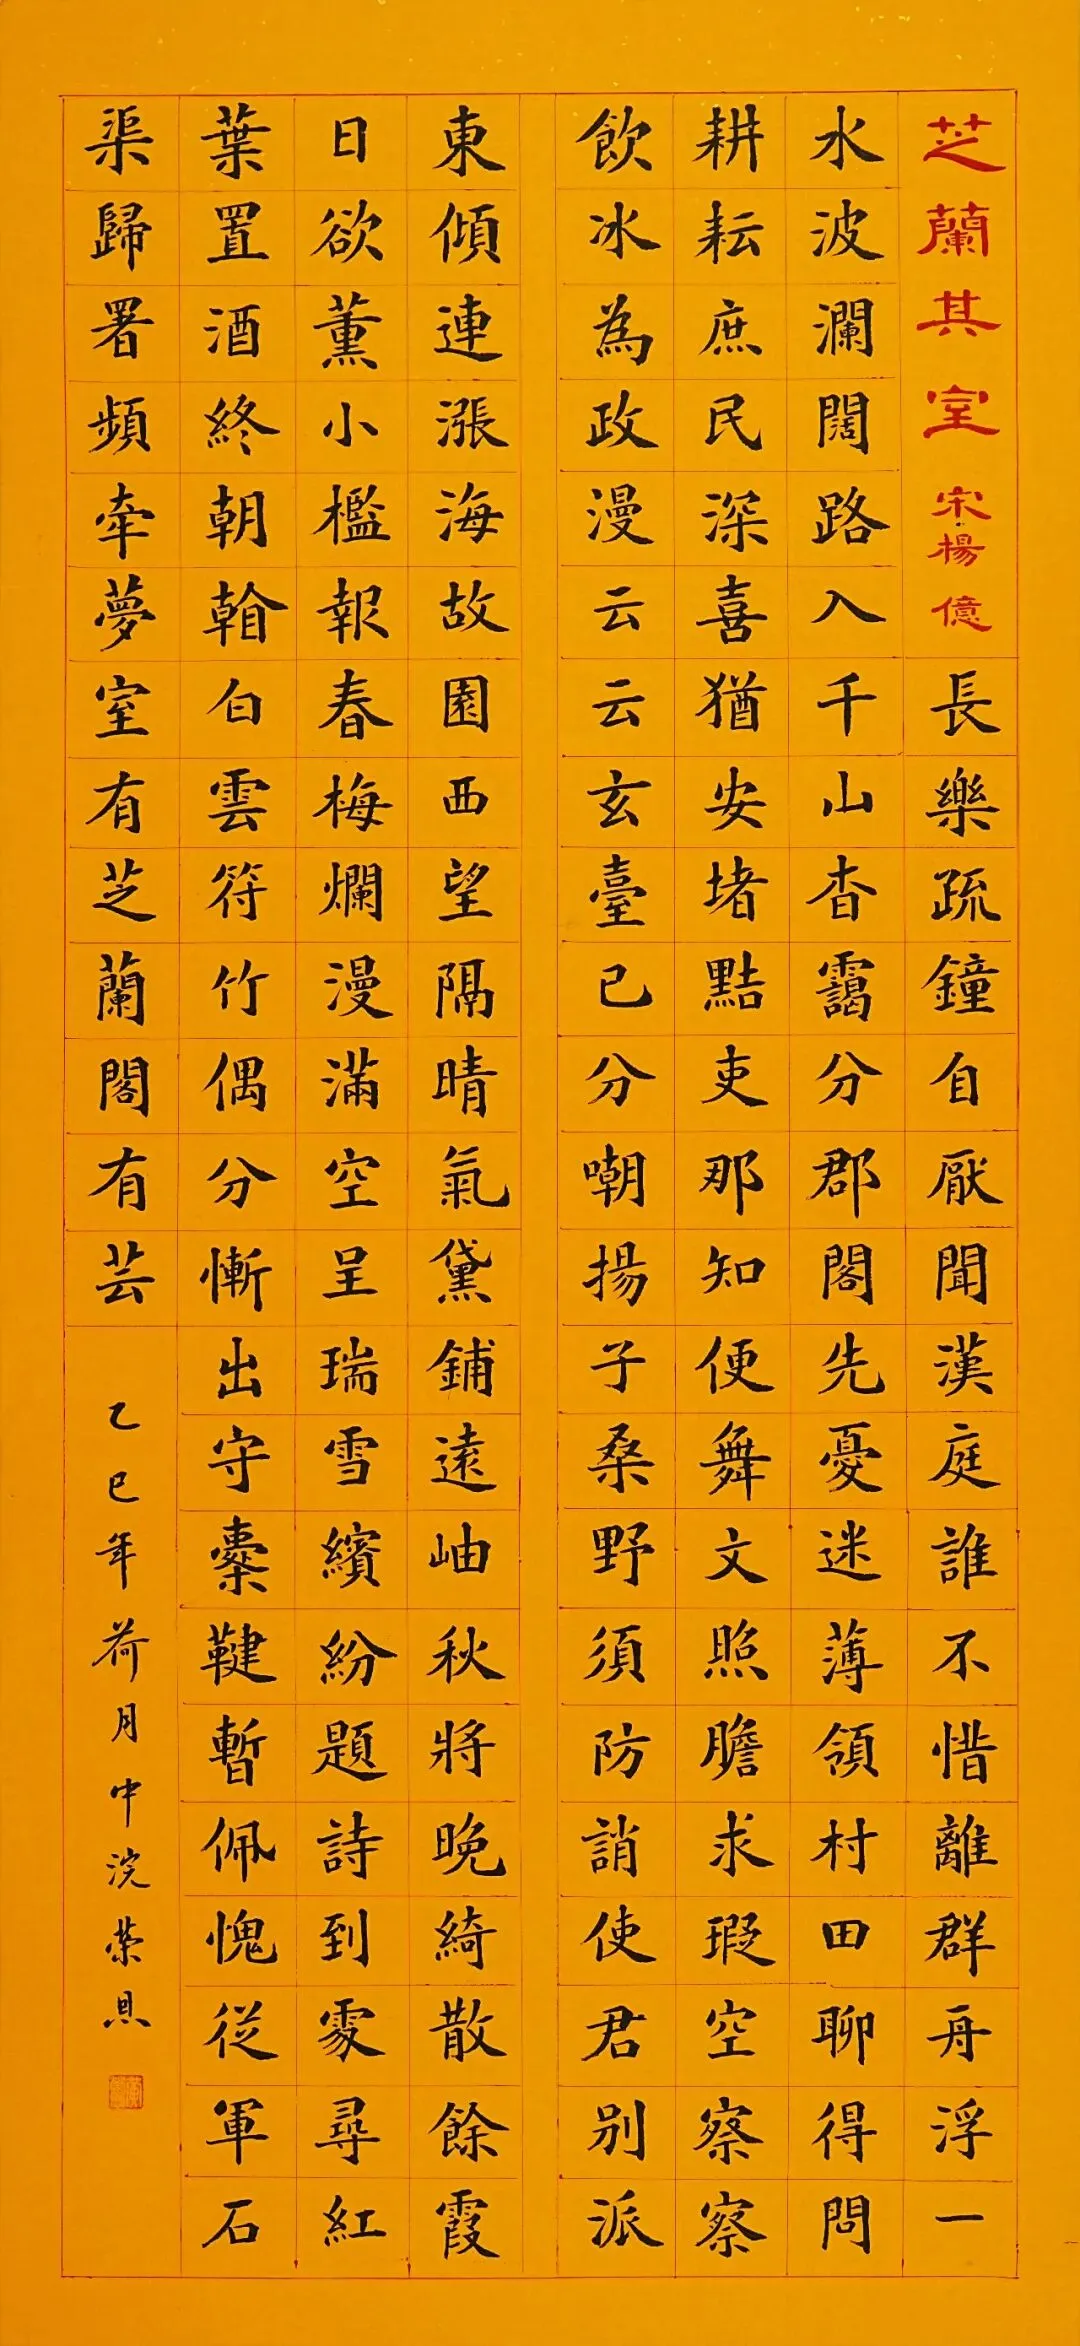 芝蘭其室 宋楊億 長樂疏鐘自厭聞漢庭誰不惜離群舟浮一
水波瀾闊路入千山杳靄分郡閣先憂迷薄領村田聊得問
耕耘庶民深喜猶安堵黠吏那知便舞文照膽求瑕空察察
飲冰為政漫云云玄臺已分嘲揚子桑野須防誚使君別派
東傾連漲海故園西望隔晴氣黛鋪遠岫秋將晚綺散餘霞
日欲薰小檻報春梅爛漫滿空呈瑞雪繽紛題詩到處尋紅
葉置酒終朝白雲符竹偶分慚出守櫜鞬暫佩愧從軍石
渠歸署頻牽夢室有芝蘭閣有芸
乙巳年荷月中浣榮恩